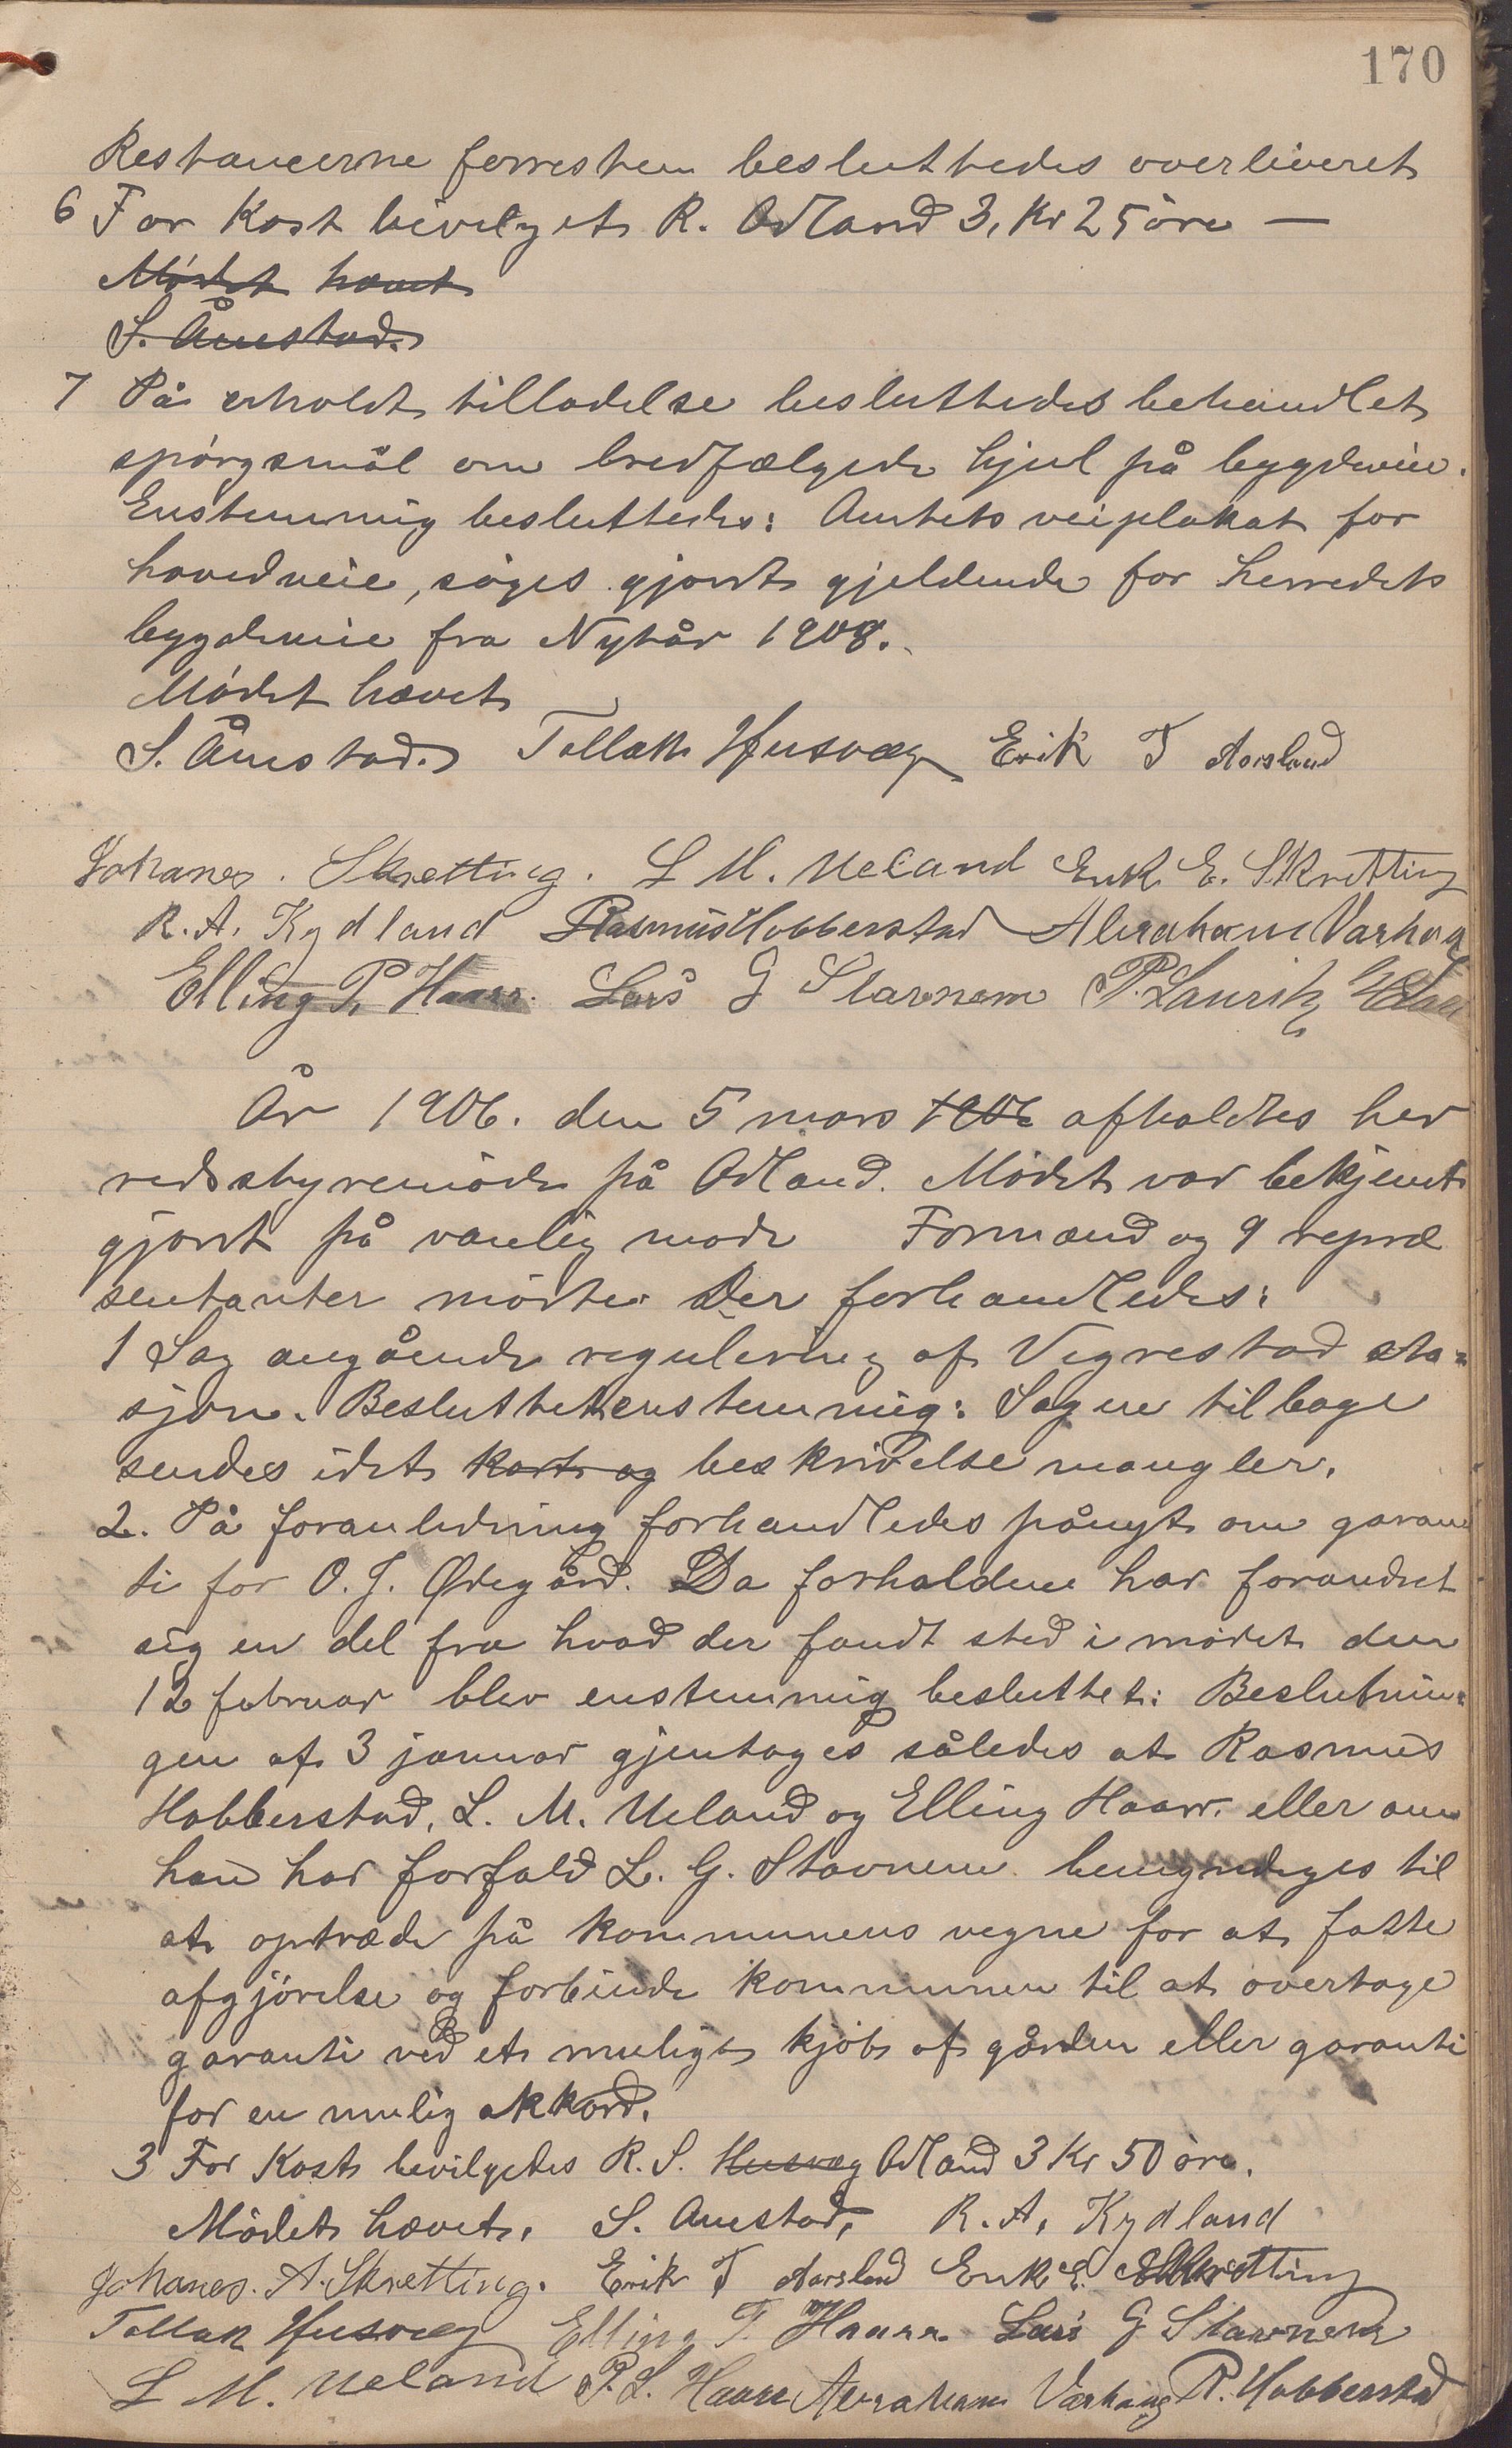 170
Restancerne forresten besluttedes overleveret
6 For Kost bevilget R. Odland 3, Kr 25 øre —
Mødet hævet
S. Ånestad.
7 På erholdt tilladelse besluttedes behandlet
spørgsmål om bredfælgede hjul på bygdeveie.
Enstemmig besluttedes: Amtets veiplakat for
hovedveie, søges gjort gjeldende for herredets
bygdeveie fra Nytår 1908.
Mødet hævet
S. Ånestad. Tollak Husvæg Erik T Aarsland
Johanes. Skretting. L M. Ueland Erik E. Skretting
R. A. Kydland Rasmus Hobberstad Abraham Varhaug
Elling P. Haar. Lars G Stavnem P. Laurits
År 1906. den 5 mars 1906 afholdtes her
redsstyremøde på Odland. Mødet var bekjent
gjort på vanlig måde Formand og 9 repræ
sentanter mødte. Der forhandledes:
1 Sag angående regulering af Vigrestad sta-
sjon. Besluttet enstemmig: Sagen tilbage
sendes idet kart og beskrivelse mangler.
2. På foranledning forhandledes pånyt om garan
ti for O. J. Ødegård. Da forholdene har forandret
sig en del fra hvad der fandt sted i mødet den
12 februar blev enstemmig besluttet: Beslutnin-
gen af 3 januar gjentages således at Rasmus
Hobberstad, L. M. Ueland og Elling Haar. eller om
han har forfald L. G. Stavnem bemyndiges til
at optræde på kommunens vegne for at fatte
afgjørelse og forbinde kommunen til at overtage
garanti ved et muligt kjøb af gården eller garanti
for en mulig akkord.
3 For Kost bevilgedes R. S. Husvæg Odland 3 Kr 50 øre.
Mødet hævet. S. Anestad, R. A. Kydland
Johanes. A. Skretting. Erik T Aarsland Erik E. Skretting
Tollak Husvæg Elling P. Haar. Lars G Stavnem
L M. Ueland P. L. Haar Abraham Varhaug R. Hobberstad